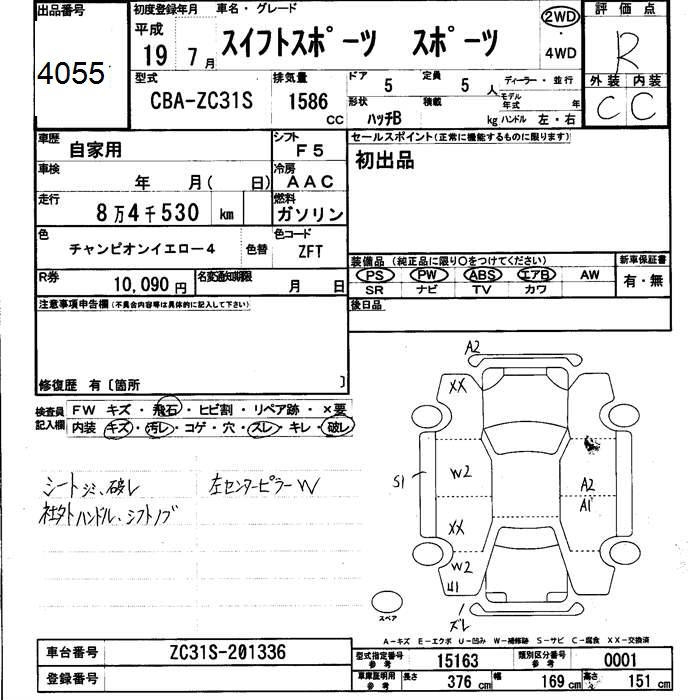 出品番号 初度登録年月 車名・グレード 2WD 評価点
4055 平成 19年 7月 スイフトスポーツ スポーツ ・ 4WD R
型式 排気量 ドア 5 定員 5人 ディーラー・並行 外装 内装
CBA-ZC31S 1586 CC 形状 ハッチB 積載 kg モデル年式 年 ハンドル 左・右 C C
車歴 自家用 シフト F5 セールスポイント(正常に機能するものに限ります)
車検 年 月( 日) 冷房 AAC 初出品
走行 8万4千530 km 燃料 ガソリン
色 チャンピオンイエロー4 色替 色コード ZFT
装備品(純正品に限り〇をつけてください) 新車保証書
R券 10,090円 名変通知期限 月 日 PS PW ABS エアB AW 有・無
SR ナビ TV カワ
注意事項申告欄(不具合内容等は具体的に記入して下さい) 後日品
修復歴 有〔箇所 〕
検査員 FW キズ・飛石・ヒビ割・リペア跡・×要
記入欄 内装 キズ・汚レ・コゲ・穴・スレ・キレ・破レ
シートシミ、破レ 左センターピラーW
社外ハンドル、シフトノブ
A2
XX
S1 W2 A2
A1
XX
W2
U1
ズレ
スペア
A-キズ E-エクボ U-凹み W-補修跡 S-サビ C-腐食 XX-交換済
車台番号 ZC31S-201336 型式指定番号 参考 15163 類別区分番号 参考 0001
登録番号 車庫証明用 参考 長さ 376cm 幅 169cm 高さ 151cm